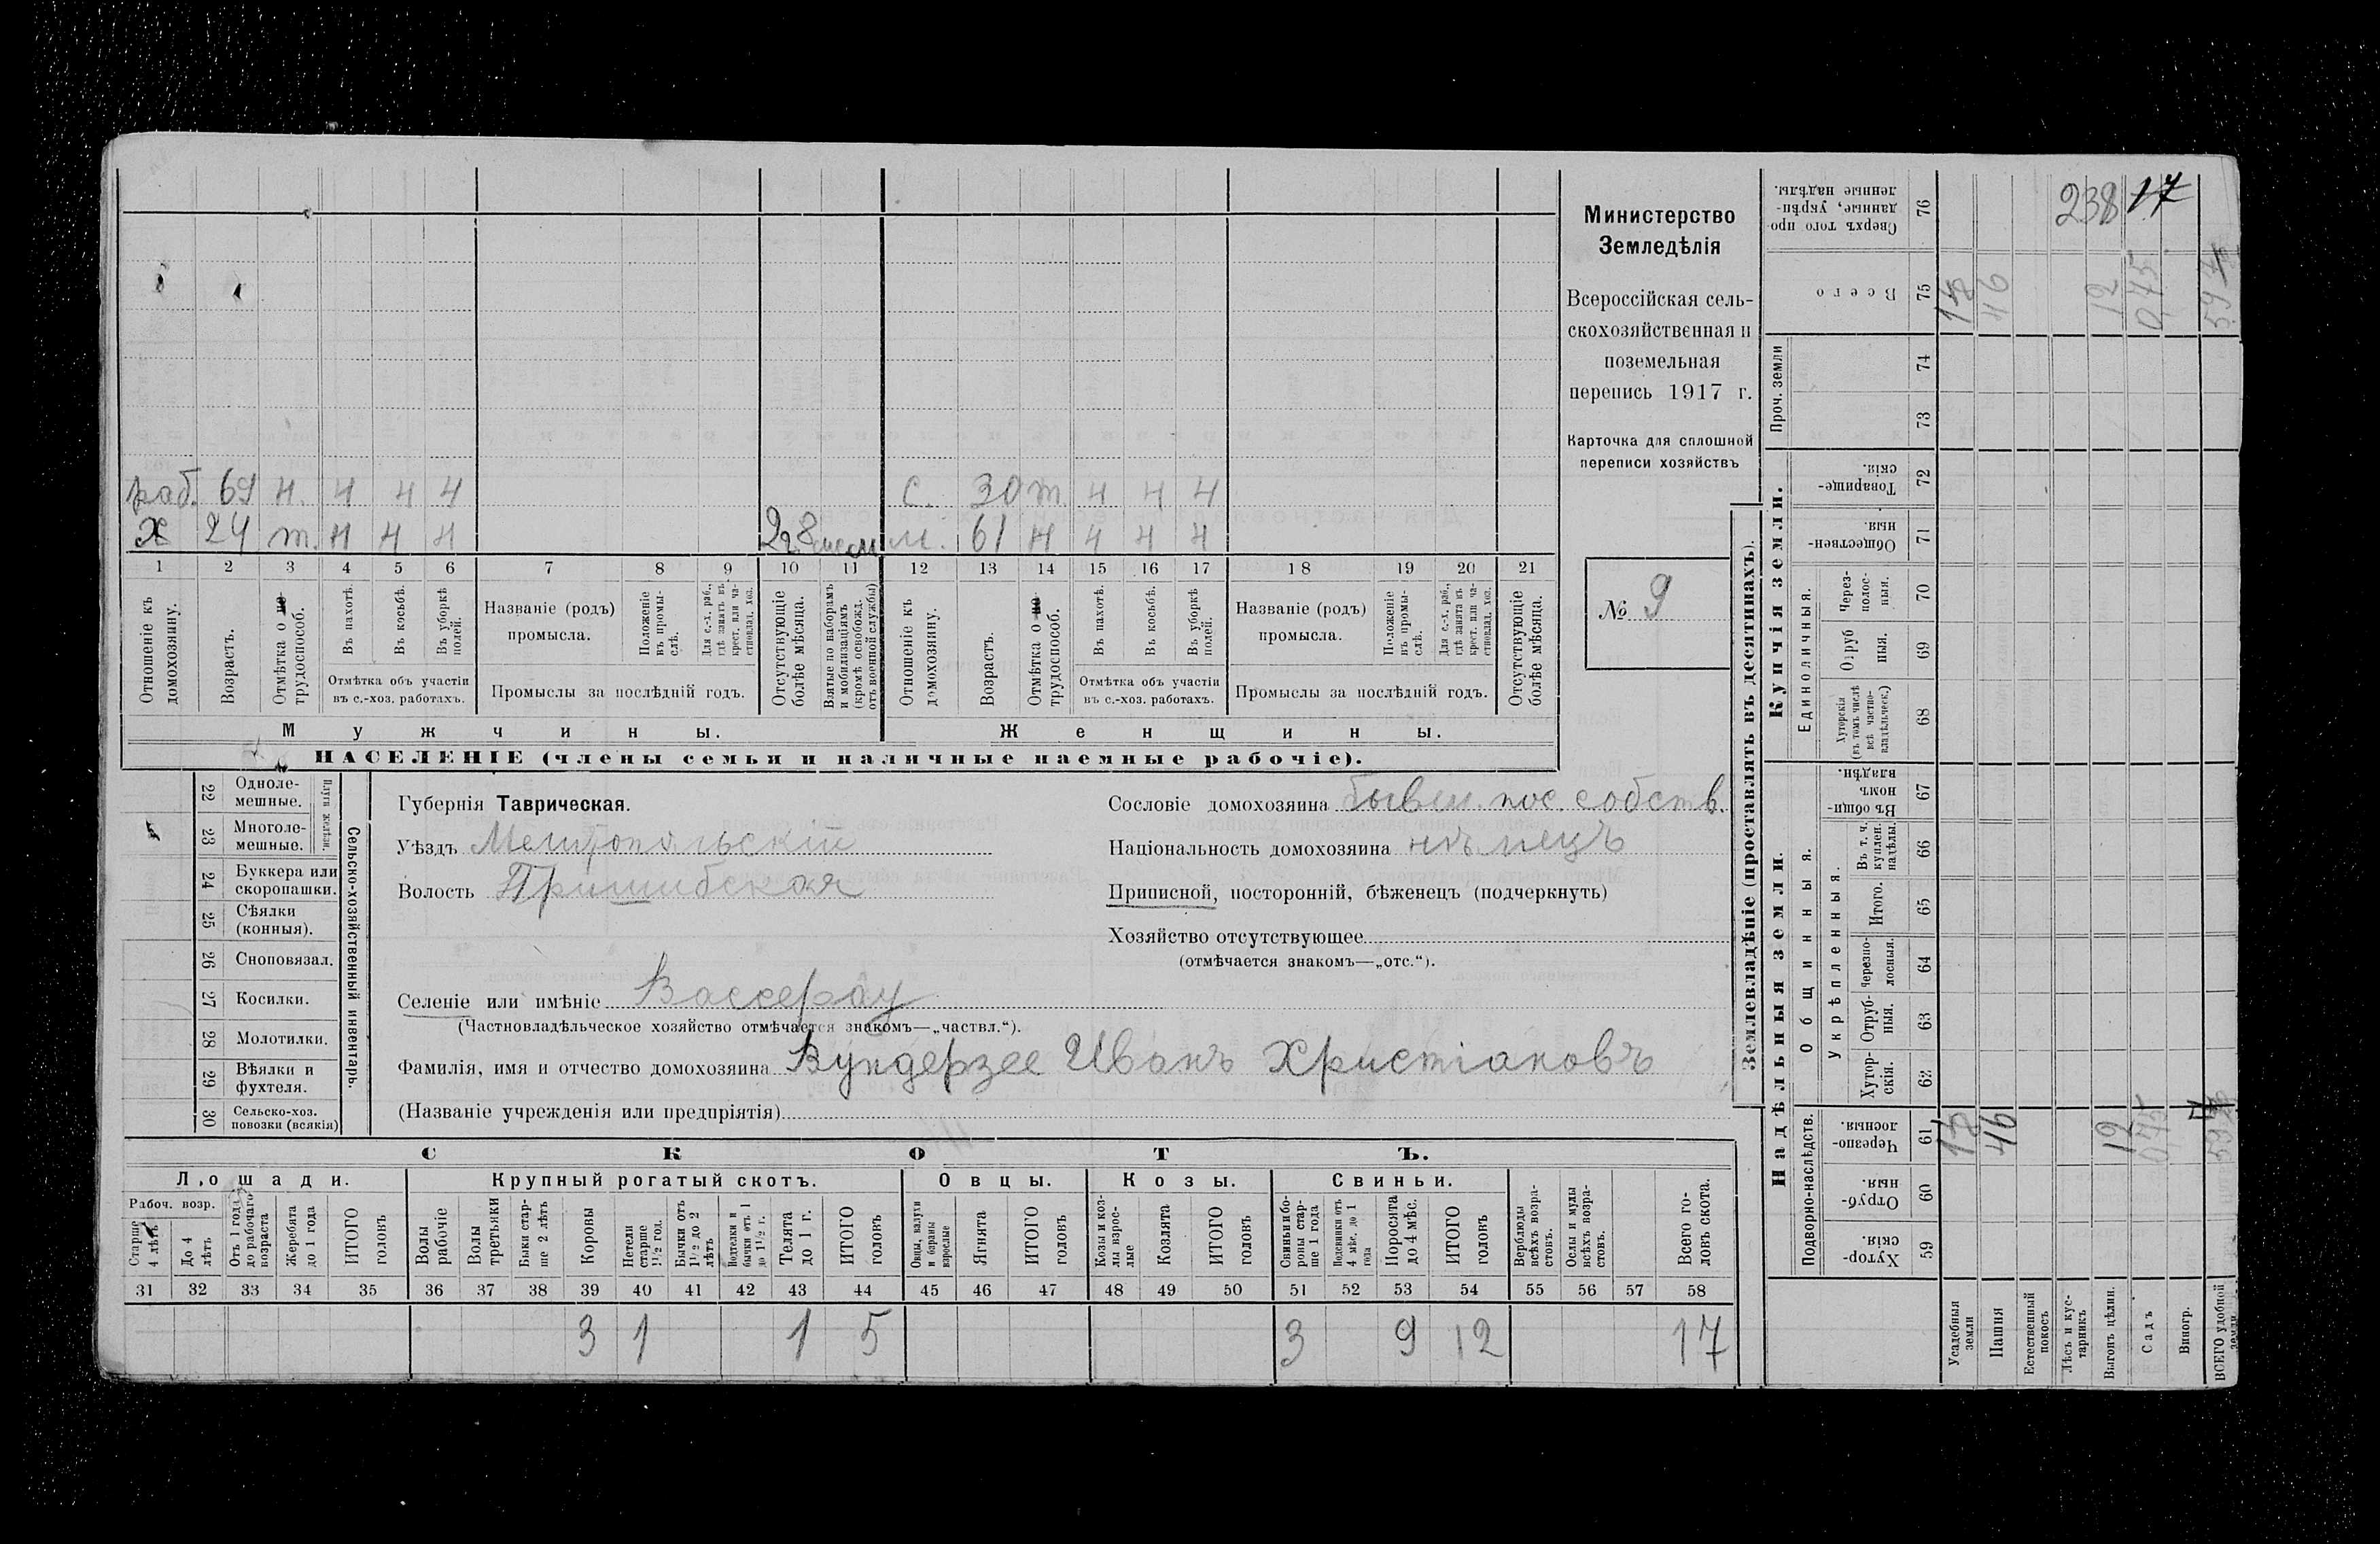 Министерство
Земледѣлія
Всероссійская сель-
скохозяйственная и
поземельная
перепись 1917 г.
Карточка для сплошной
переписи хозяйствъ
№ 9
раб. 69 н. ч ч ч с. 30 т. ч ч ч
х 24 т. н н н м. 61 н ч ч ч
1 2 3 4 5 6 7 8 9 10 11 12 13 14 15 16 17 18 19 20 21
Отношеніе къ домохозяину.
Возрастъ.
Отмѣтка о не-трудоспособ.
Въ пахотѣ.
Въ косьбѣ.
Въ уборкѣ полей.
Отмѣтка объ участіи
въ с.-хоз. работахъ.
Названіе (родъ)
промысла.
Положеніе въ промы-слѣ.
Для с.-х. раб., гдѣ занятъ въ крест. или ча-стновлад. хоз.
Промыслы за послѣдній годъ.
Отсутствующіе болѣе мѣсяца.
Взятые по наборамъ и мобилизаціямъ (кромѣ освобожд. отъ военной службы)
Отношеніе къ домохозяину.
Возрастъ.
Отмѣтка о не-трудоспособ.
Въ пахотѣ.
Въ косьбѣ.
Въ уборкѣ полей.
Отмѣтка объ участіи
въ с.-хоз. работахъ.
Названіе (родъ)
промысла.
Положеніе въ промы-слѣ.
Для с.-х. раб., гдѣ занята въ крест. или ча-стновлад. хоз.
Промыслы за послѣдній годъ.
Отсутствующіе болѣе мѣсяца.
Мужчины.
Женщины.
НАСЕЛЕНІЕ (члены семьи и наличные наемные рабочіе).
22 Одноле-мешные.
23 Многоле-мешные.
Плуги желѣзн.
24 Буккера или скоропашки.
25 Сѣялки (конныя).
26 Сноповязал.
27 Косилки.
28 Молотилки.
29 Вѣялки и фухтеля.
30 Сельско-хоз. повозки (всякія)
Сельско-хозяйственный инвентарь.
Губернія Таврическая.
Уѣздъ Мелитопольскій
Волость Пришибская
Сословіе домохозяина бывш. пос. собств.
Національность домохозяина нѣмецъ
Приписной, посторонній, бѣженецъ (подчеркнуть)
Хозяйство отсутствующее
(отмѣчается знакомъ—„отс.“).
Селеніе или имѣніе Вассерау
(Частновладѣльческое хозяйство отмѣчается знакомъ—„частвл.“).
Фамилія, имя и отчество домохозяина Вундерзее Иванъ Христіановъ
(Названіе учрежденія или предпріятія)
СКОТЪ.
Лошади.
Крупный рогатый скотъ.
Овцы.
Козы.
Свиньи.
Рабоч. возр.
Старше 4 лѣтъ
До 4 лѣтъ
Отъ 1 года до рабочаго возраста
Жеребята до 1 года
ИТОГО головъ
Волы рабочіе
Волы третьяки
Быки стар-ше 2 лѣтъ
Коровы
Нетели старше 1½ год.
Бычки отъ 1½ до 2 лѣтъ
Подтелки и бычки отъ 1 до 1½ г.
Телята до 1 г.
ИТОГО головъ
Овцы, валухи и бараны взрослые
Ягнята
ИТОГО головъ
Козы и коз-лы взрос-лые
Козлята
ИТОГО головъ
Свиньи и бо-ровы стар-ше 1 года
Подсвинки отъ 4 мѣс. до 1 года
Поросята до 4 мѣс.
ИТОГО головъ
Верблюды всѣхъ возра-стовъ.
Ослы и мулы всѣхъ возра-стовъ.
Всего го-ловъ скота.
31 32 33 34 35 36 37 38 39 40 41 42 43 44 45 46 47 48 49 50 51 52 53 54 55 56 57 58
3 1 1 5 3 9 12 17
Землевладѣніе (проставлять въ десятинахъ).
Надѣльныя земли.
Купчія земли.
Проч. земли
Подворно-наслѣдств.
Общинныя.
Укрѣпленныя.
Единоличныя.
76 Сверхъ того про-данные, укрѣп-ленные надѣлы.
238 17
75 Всего
46 12 0,75
74
73
72 Товарище-скія.
71 Обществен-ныя.
70 Через-полос-ныя.
69 Отруб ныя.
68 Хуторскія (въ томъ числѣ всѣ частно-владѣльческ.)
67 Въ общи-номъ владѣн.
66 Въ т. ч. куплен. надѣлы.
65 Итого.
64 Черезпо-лосныя.
63 Отруб-ныя.
62 Хутор-скія.
61 Черезпо-лосныя.
46 12 0,75
60 Отруб-ныя.
59 Хутор-скія.
Усадебныя земли
Пашня
Естественный покосъ
Лѣсъ и кус-тарникъ
Выгонъ цѣлин.
Садъ
Виногр.
ВСЕГО удобной земли